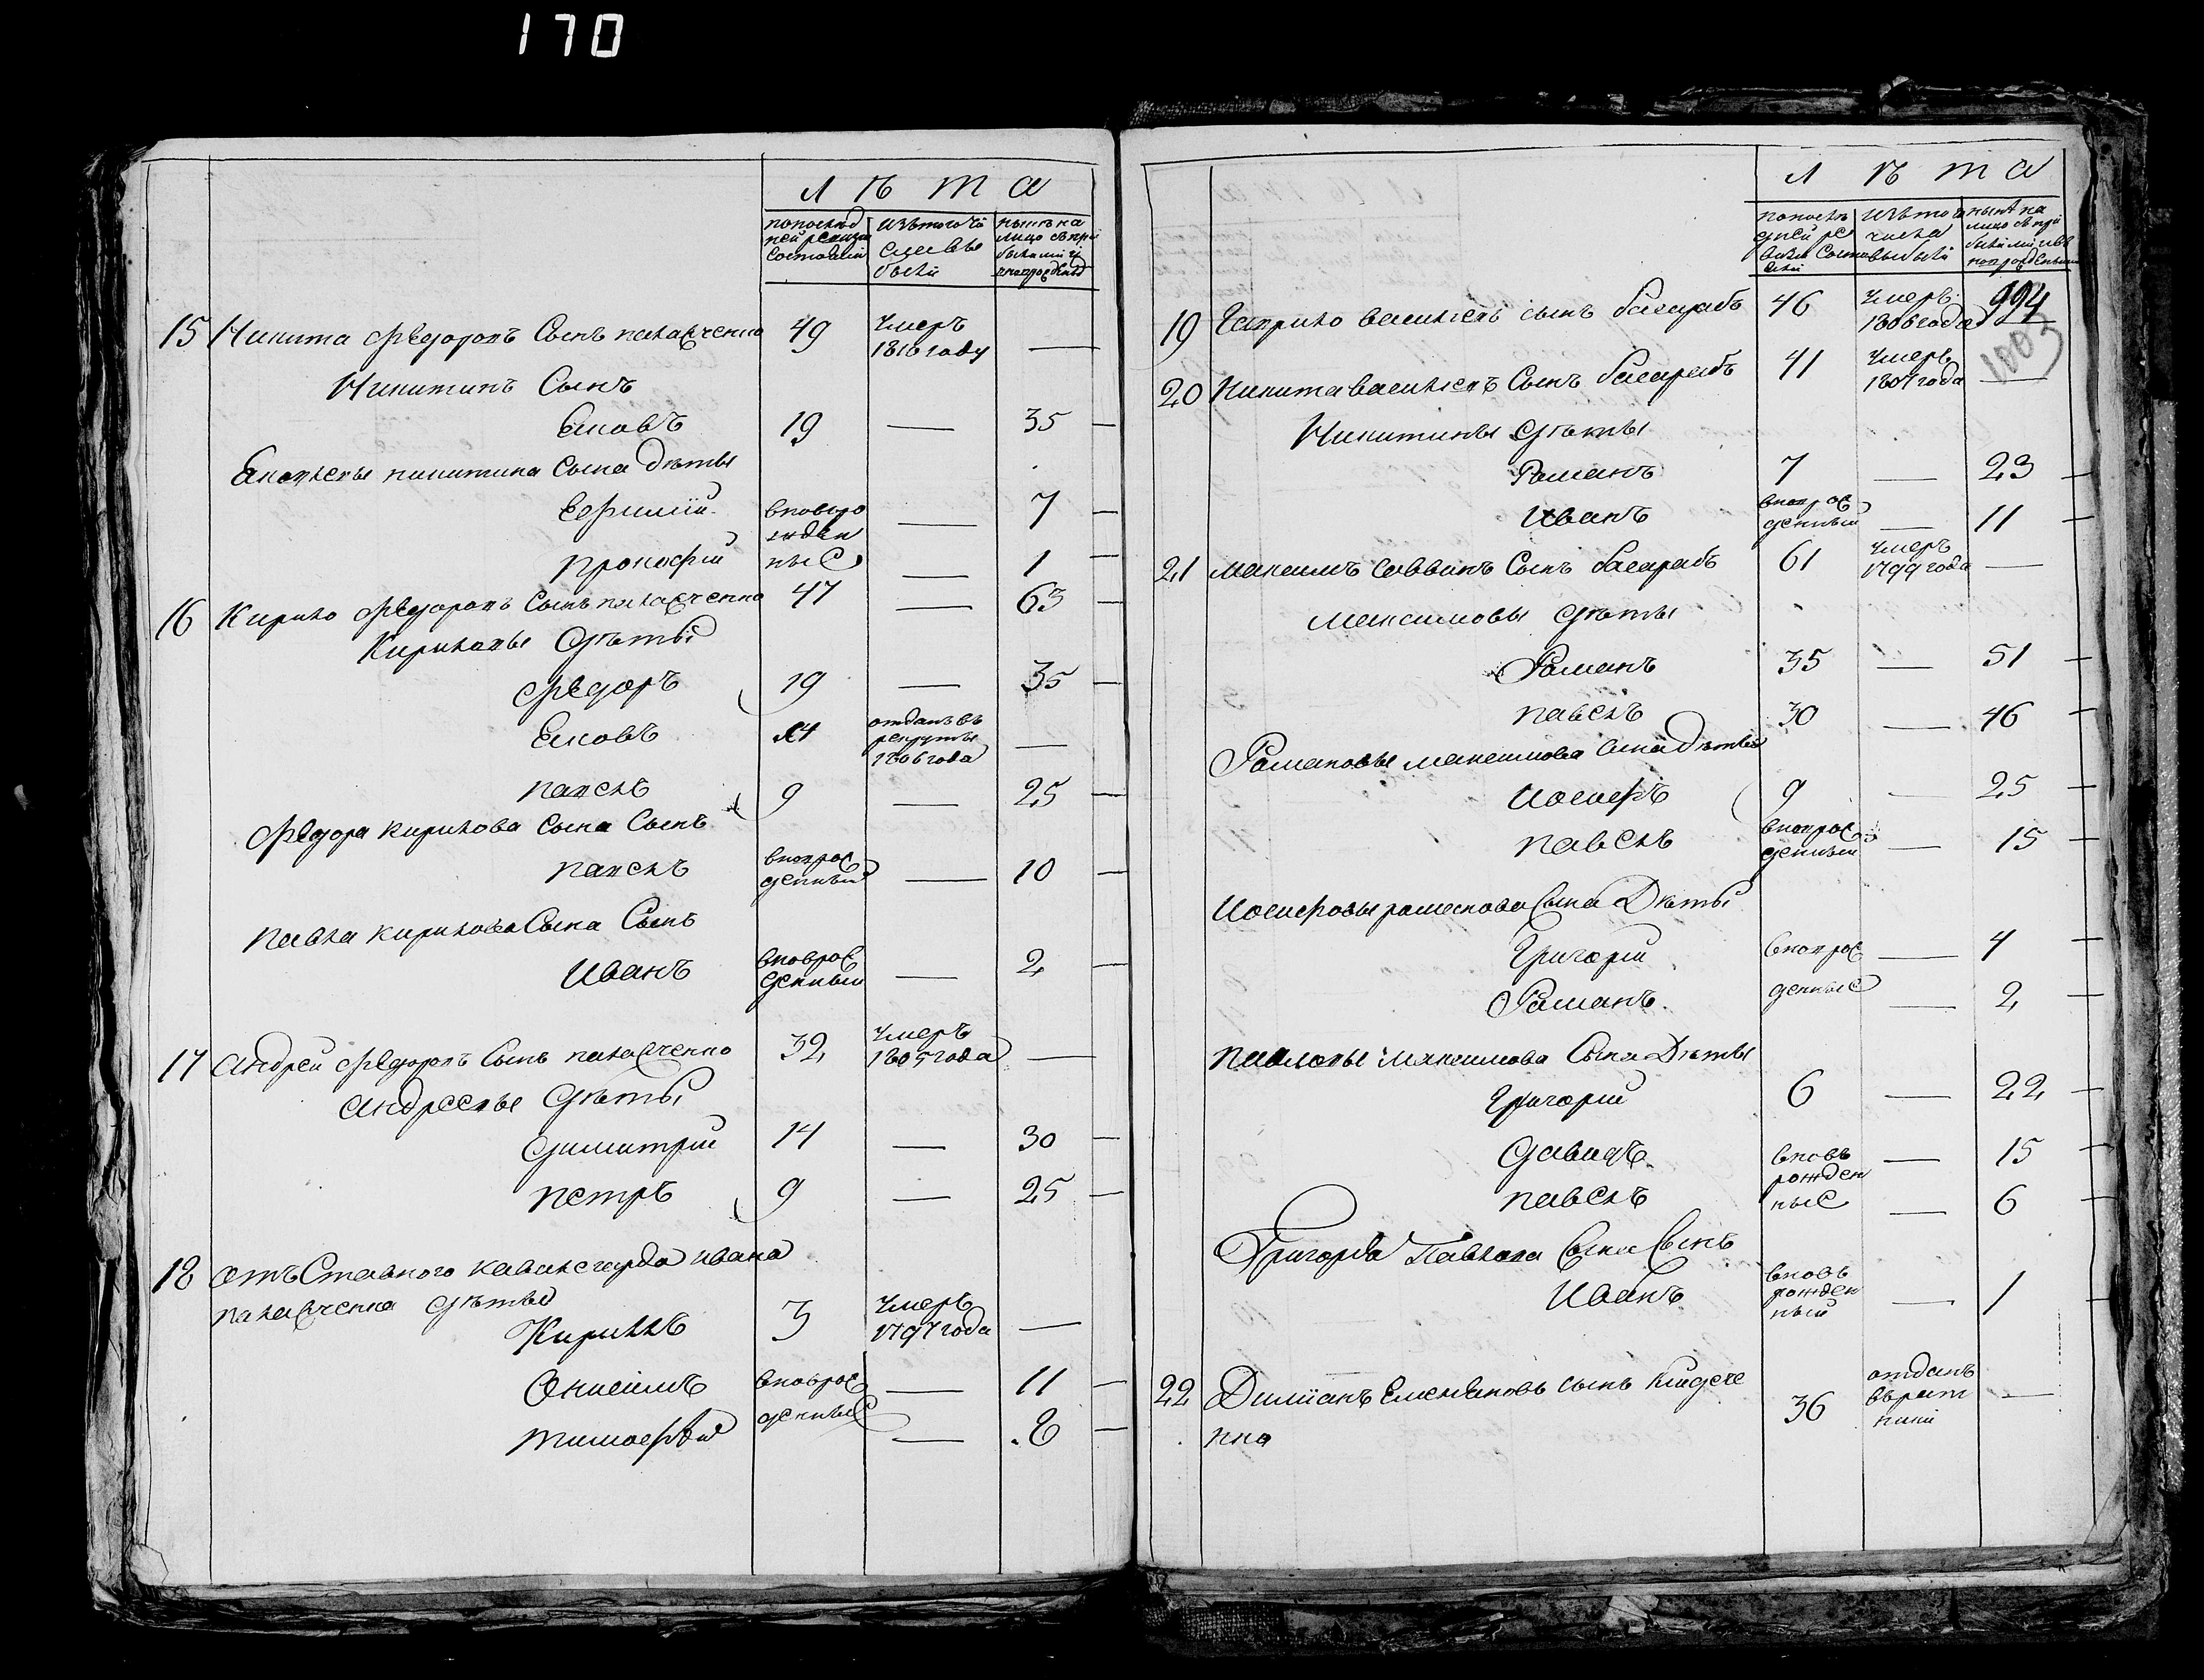 170
Л Ѣ Т А
попослѣд ней ревизи состояли
изътого чи сла вы были
нынѣ на лицо съпри былими и вновьрожден
15 Никита Федоровъ Сынъ палавченко 49 умеръ 1810 году —
Никитинъ Сынъ
Яковъ 19 — 35 —
Яковлевы никитина сына дѣти
Ефимий вновьро жден — 7 —
Прокофий ные — 1 —
16 Кирило Федоровъ Сынъ палавченко 47 — 63 —
Кириловы дѣти
Федоръ 19 — 35 —
Яковъ 14 отданъ въ рекруты 1806 года —
павелъ 9 — 25 —
Федора Кирилова Сына Сынъ
павелъ вноврож денный — 10 —
Павла Кирилова Сына Сынъ
Иванъ вноврож денный — 2 —
17 Андрей Федоровъ Сынъ палавченко 32 умеръ 1805 года —
Андреевы дѣти
Димитрий 14 — 30 —
Петръ 9 — 25 —
18 Отъ Ставного Ивана
палавченка дѣти
Кирилъ 3 умеръ 1797 года —
Онисимъ вноврож — 11 —
тимофѣй денные — 8 —
Л Ѣ Т А
попослѣ дней ре визи состо яли
изътого числа выбыли
нынѣ на лицо съпри былими ивъ новрожденными
19 Гаврило васильевъ сынъ басарабъ 46 умеръ 1806 года 994
1003
20 Никита васильевъ Сынъ басарабъ 41 умеръ 1807 года —
Никитины дѣти
Романъ 7 — 23 —
Иванъ вноврож денный — 11 —
21 Максимъ Саввинъ Сынъ басарабъ 61 умеръ 1799 года —
Максимовы дѣти
Романъ 35 — 51 —
павелъ 30 — 46 —
Романовы максимова сына дѣти
Иосифъ 9 — 25 —
павелъ вноврож денный — 15 —
Иосифовы романова Сына Дѣти
Григорий вноврож — 4 —
Романъ денные — 2 —
Павловы максимова Сына Дѣти
Григорий 6 — 22 —
Давидъ вновь рожден — 15 —
павелъ ные — 6
Григорья Павлова Сына Сынъ
Иванъ вновь рожден ный — 1 —
22 Димианъ Емельяновъ сынъ 36 отданъ —